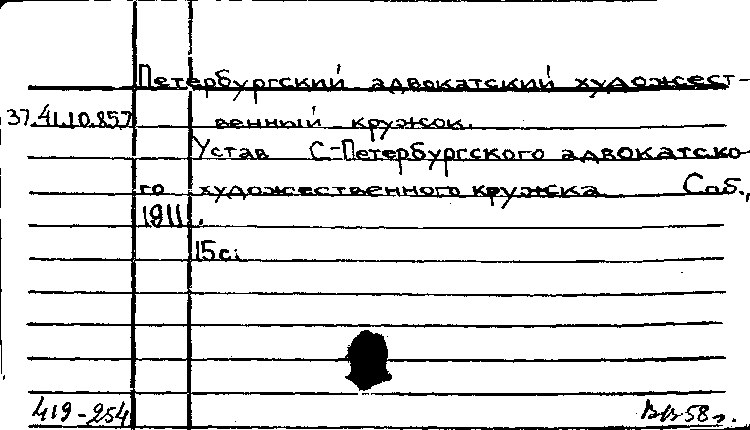 Петербургский адвокатский художест-
37.41.10.857 венный кружок.
Устав С-Петербургского адвокатско-
го художественного кружка Спб.,
1911.
15с.
419-254 58г.